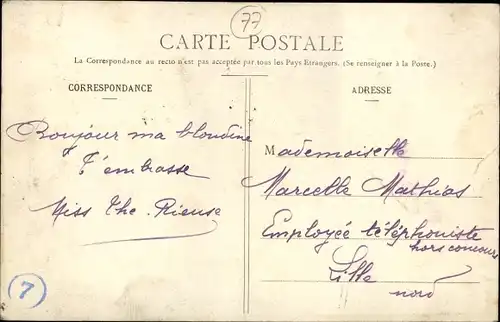 77
CARTE POSTALE
La Correspondance au recto n'est pas acceptée par tous les Pays Etrangers. (Se renseigner à la Poste.)
CORRESPONDANCE
Bonjour ma blondine
T'embrasse
Miss The Rieuse
7
ADRESSE
Mademoiselle
Marcelle Mathias
Employée téléphoniste
hors concours
Lille
nord